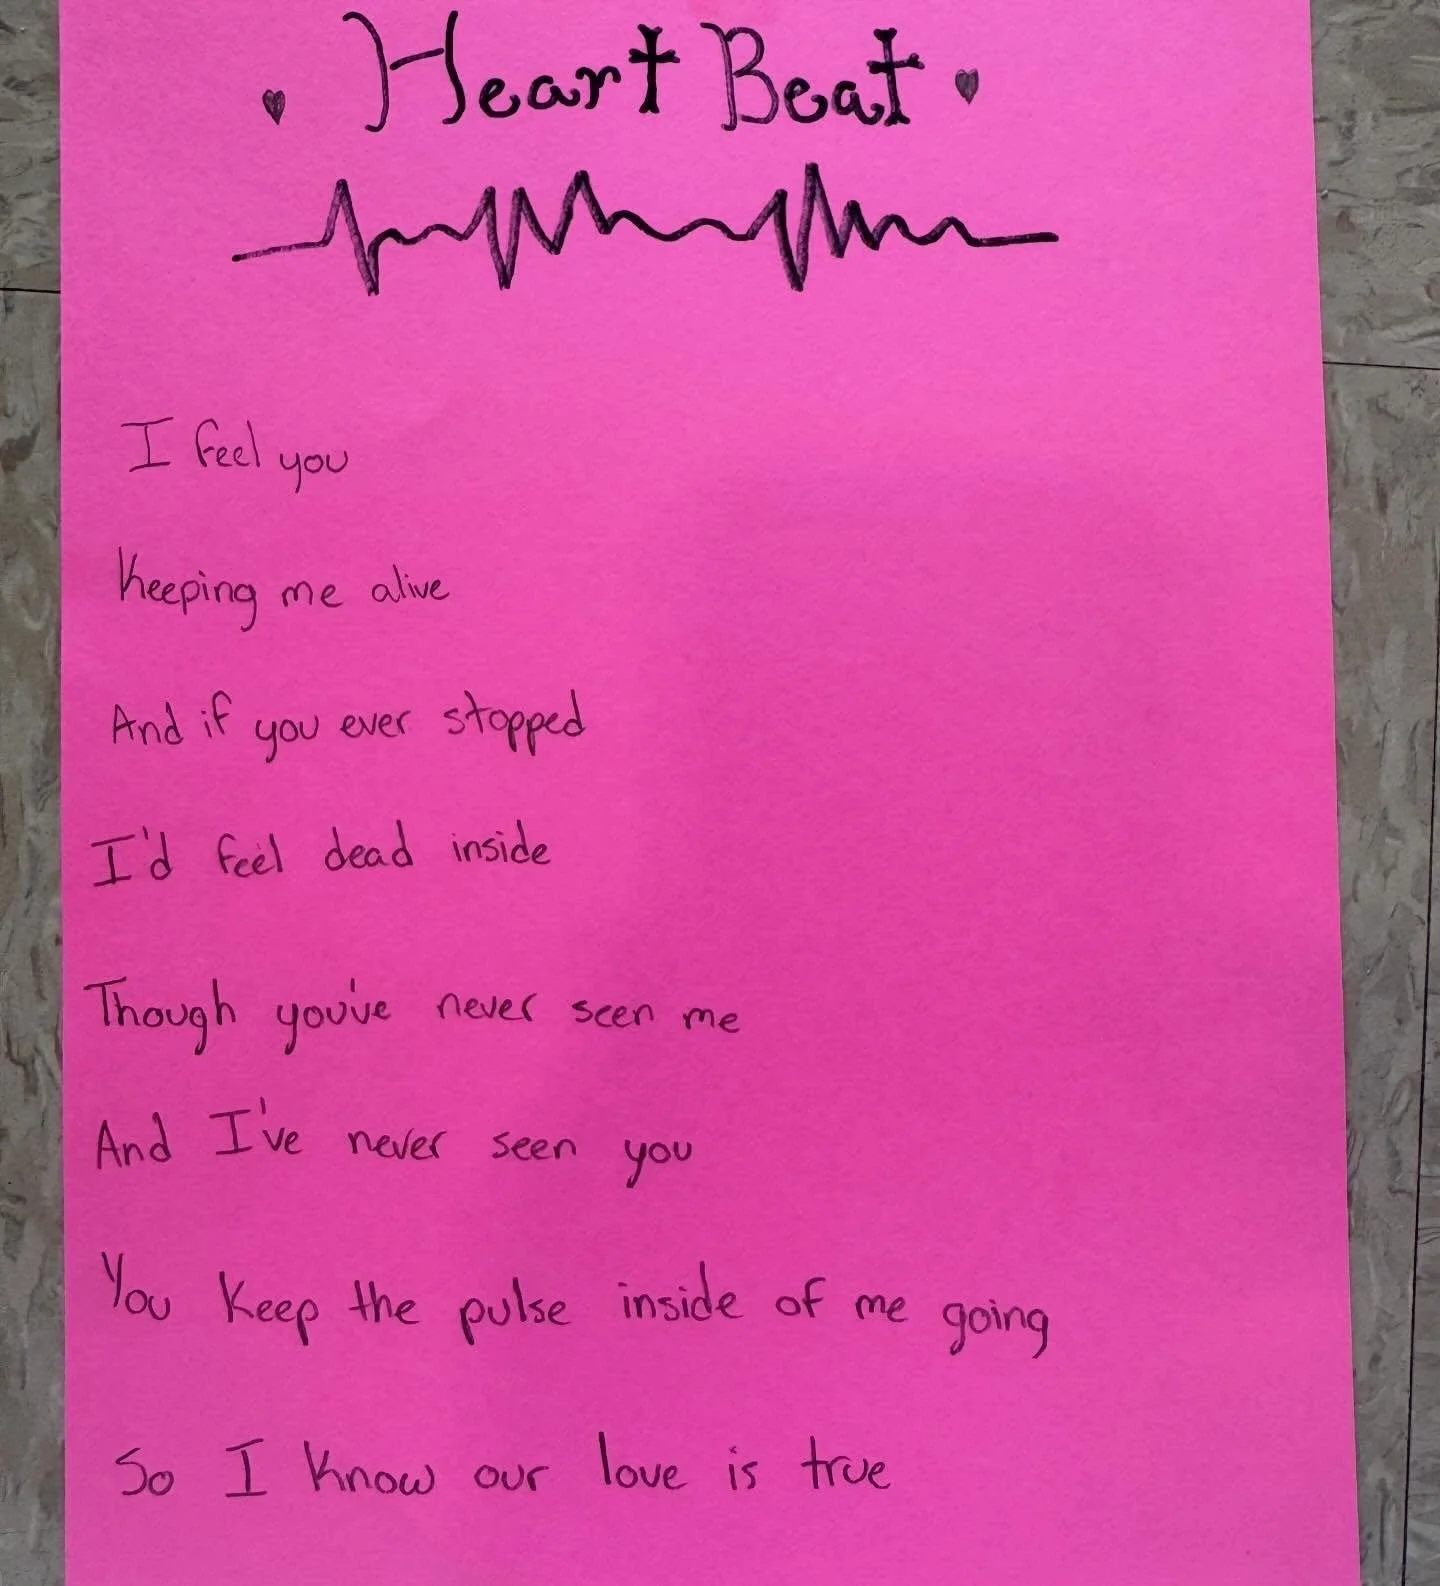 Heart Beat
I feel you
Keeping me alive
And if you ever stopped
I'd feel dead inside
Though you've never seen me
And I've never seen you
You keep the pulse inside of me going
So I know our love is true